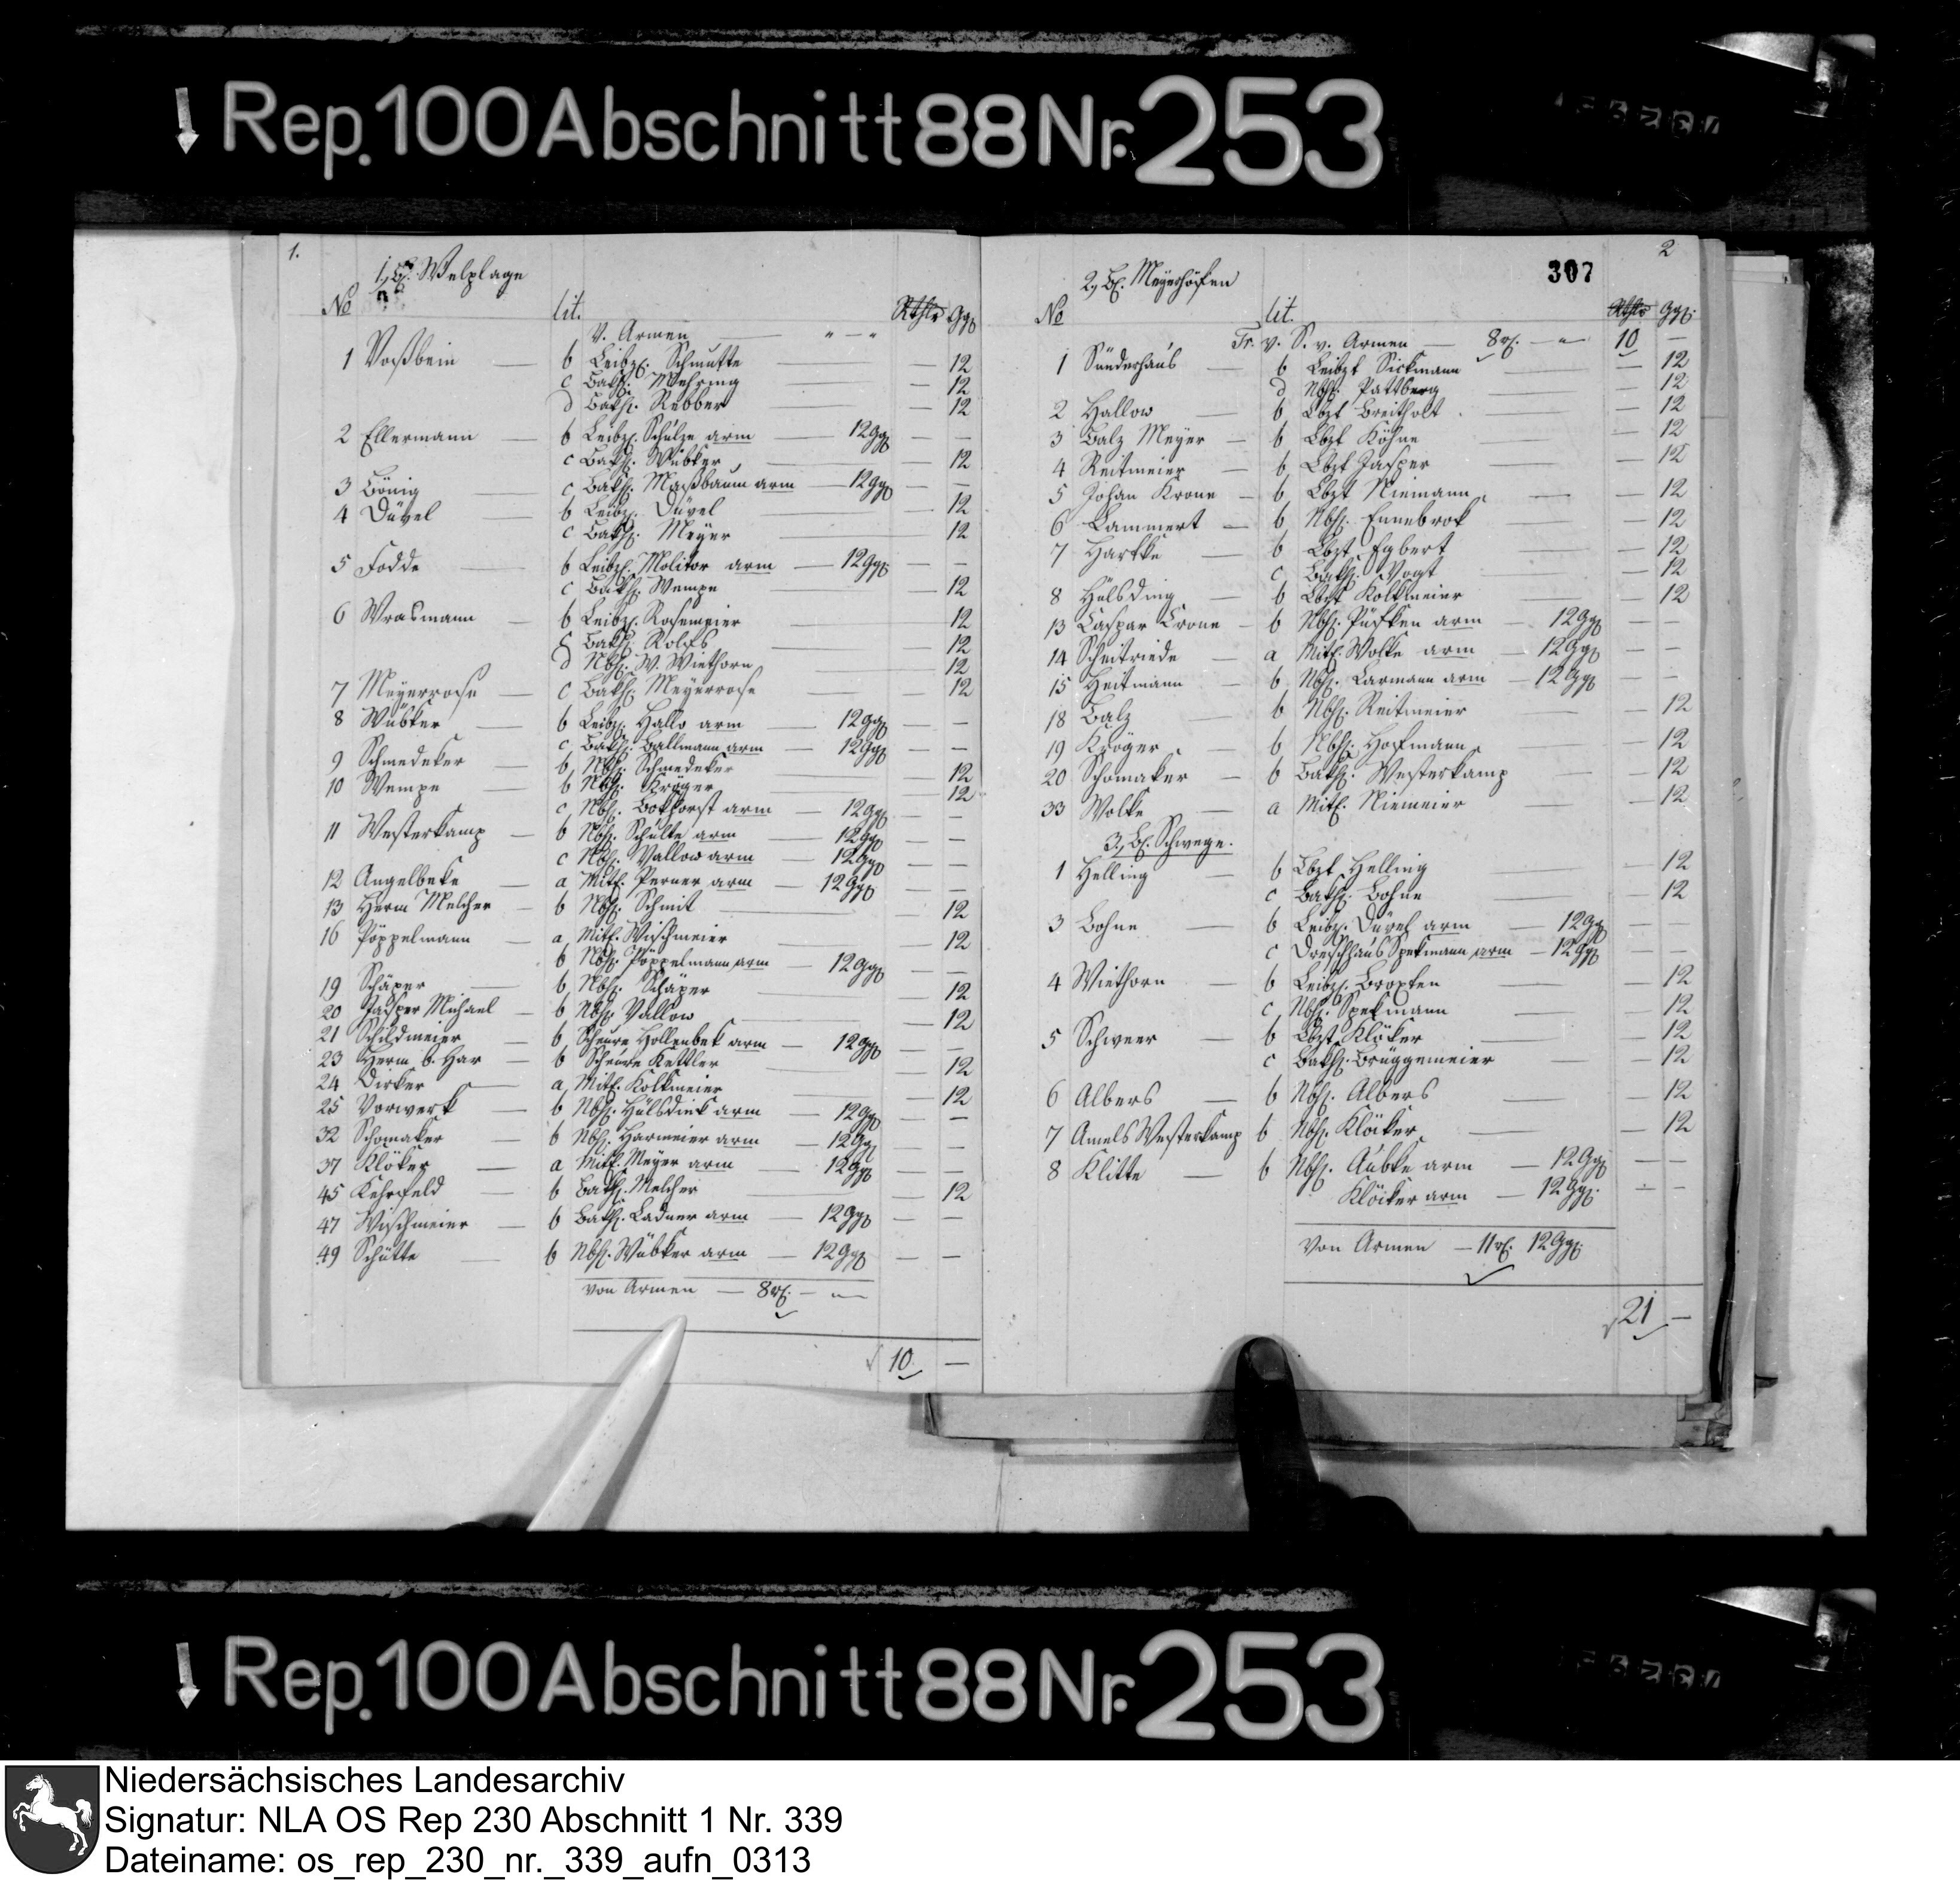 Rep.100 Abschnitt 88 Nr. 253
1.
1, Bs. Welplage
No lit. Rthlr Ggr
v. Armen — " — "
1 Voßbein — b Leibz. Schmutte — 12
c Bakh. Mehring — 12
d Bakh. Rebber — 12
2 Ellermann — b Leibz. Schulze arm 12 Ggr — —
c Bakh. Wübker — 12
3 Bönig — c Bakh. Maßbaum arm — 12 Ggr — —
4 Düvel — b Leibz. Düvel — 12
c Bakh. Meyer — 12
5 Fodde — b Leibz. Molitor arm — 12 Ggr — —
c Bakh. Wempe — 12
6 Wrasmann — b Leibz. Rosemeier — 12
c Bakh. Rolfs — 12
d Nbh. W. Wiethorn — 12
7 Meyerrose — c Bakh. Meyerrose — 12
8 Wübker — b Leibz. Hallo arm — 12 Ggr — —
c Bakh. Ballmann arm — 12 Ggr — —
9 Schmedeker — b Nbh. Schmedeker — 12
10 Wempe — b Nbh. Kröger — 12
c Nbh. Bokhorst arm — 12 Ggr — —
11 Westerkamp — b Nbh. Schulte arm — 12 Ggr — —
c Nbh. Vallow arm — 12 Ggr — —
12 Angelbeke — a Mith. Perner arm — 12 Ggr — —
13 Herm Melcher — b Nbh. Schmit — 12
16 Pöppelmann — a Mith. Wischmeier — 12
b Nbh. Pöppelmann arm — 12 Ggr — —
19 Schäper — b Nbh. Schäper — 12
20 Jasper Michael — b Nbh. Vallow — 12
21 Schildmeier — b Scheure Hollenbek arm — 12 Ggr — —
23 Herm b. Har — b Scheure Kettler — 12
24 Dirker — a Mith. Kolkmeier — 12
25 Vorwerk — b Nbh. Hülsdiek arm — 12 Ggr — —
32 Schomaker — b Nbh. Harmeier arm — 12 Ggr — —
37 Klöker — a Mith. Meyer arm — 12 Ggr — —
45 Kehrfeld — b Bakh. Melcher — 12
47 Wischmeier — b Bakh. Ladner arm — 12 Ggr — —
49 Schütte — b Nbh. Wübker arm — 12 Ggr — —
von Armen — 8 rh. — "
10 —
2
307
2, Bs. Meyerhöfen
No lit. Rthlr Ggr.
Tr. v. S. v. Armen — 8 rh. — " — 10 —
1 Sünderhaus — b Leibzt Sickmann — 12
d Nbh. Pattberg — 12
2 Hallow — b Lbzt Breitholt — 12
3 Balz Meyer — b Lbzt Köhne — 12
4 Reitmeier — b Lbzt Jasper — 12
5 Johan Krone — b Lbzt Niemann — 12
6 Lammert — b Nbh. Ennebrok — 12
7 Hartke — b Lbzt Egbert — 12
c Bakh. Vogt — 12
8 Hülsding — b Lbzt Kolkmeier — 12
13 Caspar Crone — b Nbh. Püfken arm — 12 Ggr — —
14 Scheitriede — a Mith. Wolke arm — 12 Ggr — —
15 Heitmann — b Nbh. Larmann arm — 12 Ggr — —
18 Balz — b Nbh. Reitmeier — 12
19 Kröger — b Nbh. Hofmann — 12
20 Schomaker — b Bakh. Westerkamp — 12
33 Wolke — a Mith. Niemeier — 12
3, Bs. Schwege.
1 Helling — b Lbzt Helling — 12
c Bakh. Bohne — 12
3 Bohne — b Leibz. Düvel arm — 12 Ggr — —
c Dreschhaus Spekmann arm — 12 Ggr — —
4 Wiethorn — b Leibz. Broxten — 12
c Nbh. Spekmann — 12
5 Schweer — b Lbzt Klöker — 12
c Bakh. Brüggemeier — 12
6 Albers — b Nbh. Albers — 12
7 Amels Westerkamp b Nbh. Klöcker — 12
8 Klitte — b Nbh. Aubke arm — 12 Ggr — —
Klöcker arm — 12 Ggr. — —
von Armen — 11 rh. 12 Ggr.
21 —
Rep.100 Abschnitt 88 Nr. 253
Niedersächsisches Landesarchiv
Signatur: NLA OS Rep 230 Abschnitt 1 Nr. 339
Dateiname: os_rep_230_nr._339_aufn_0313